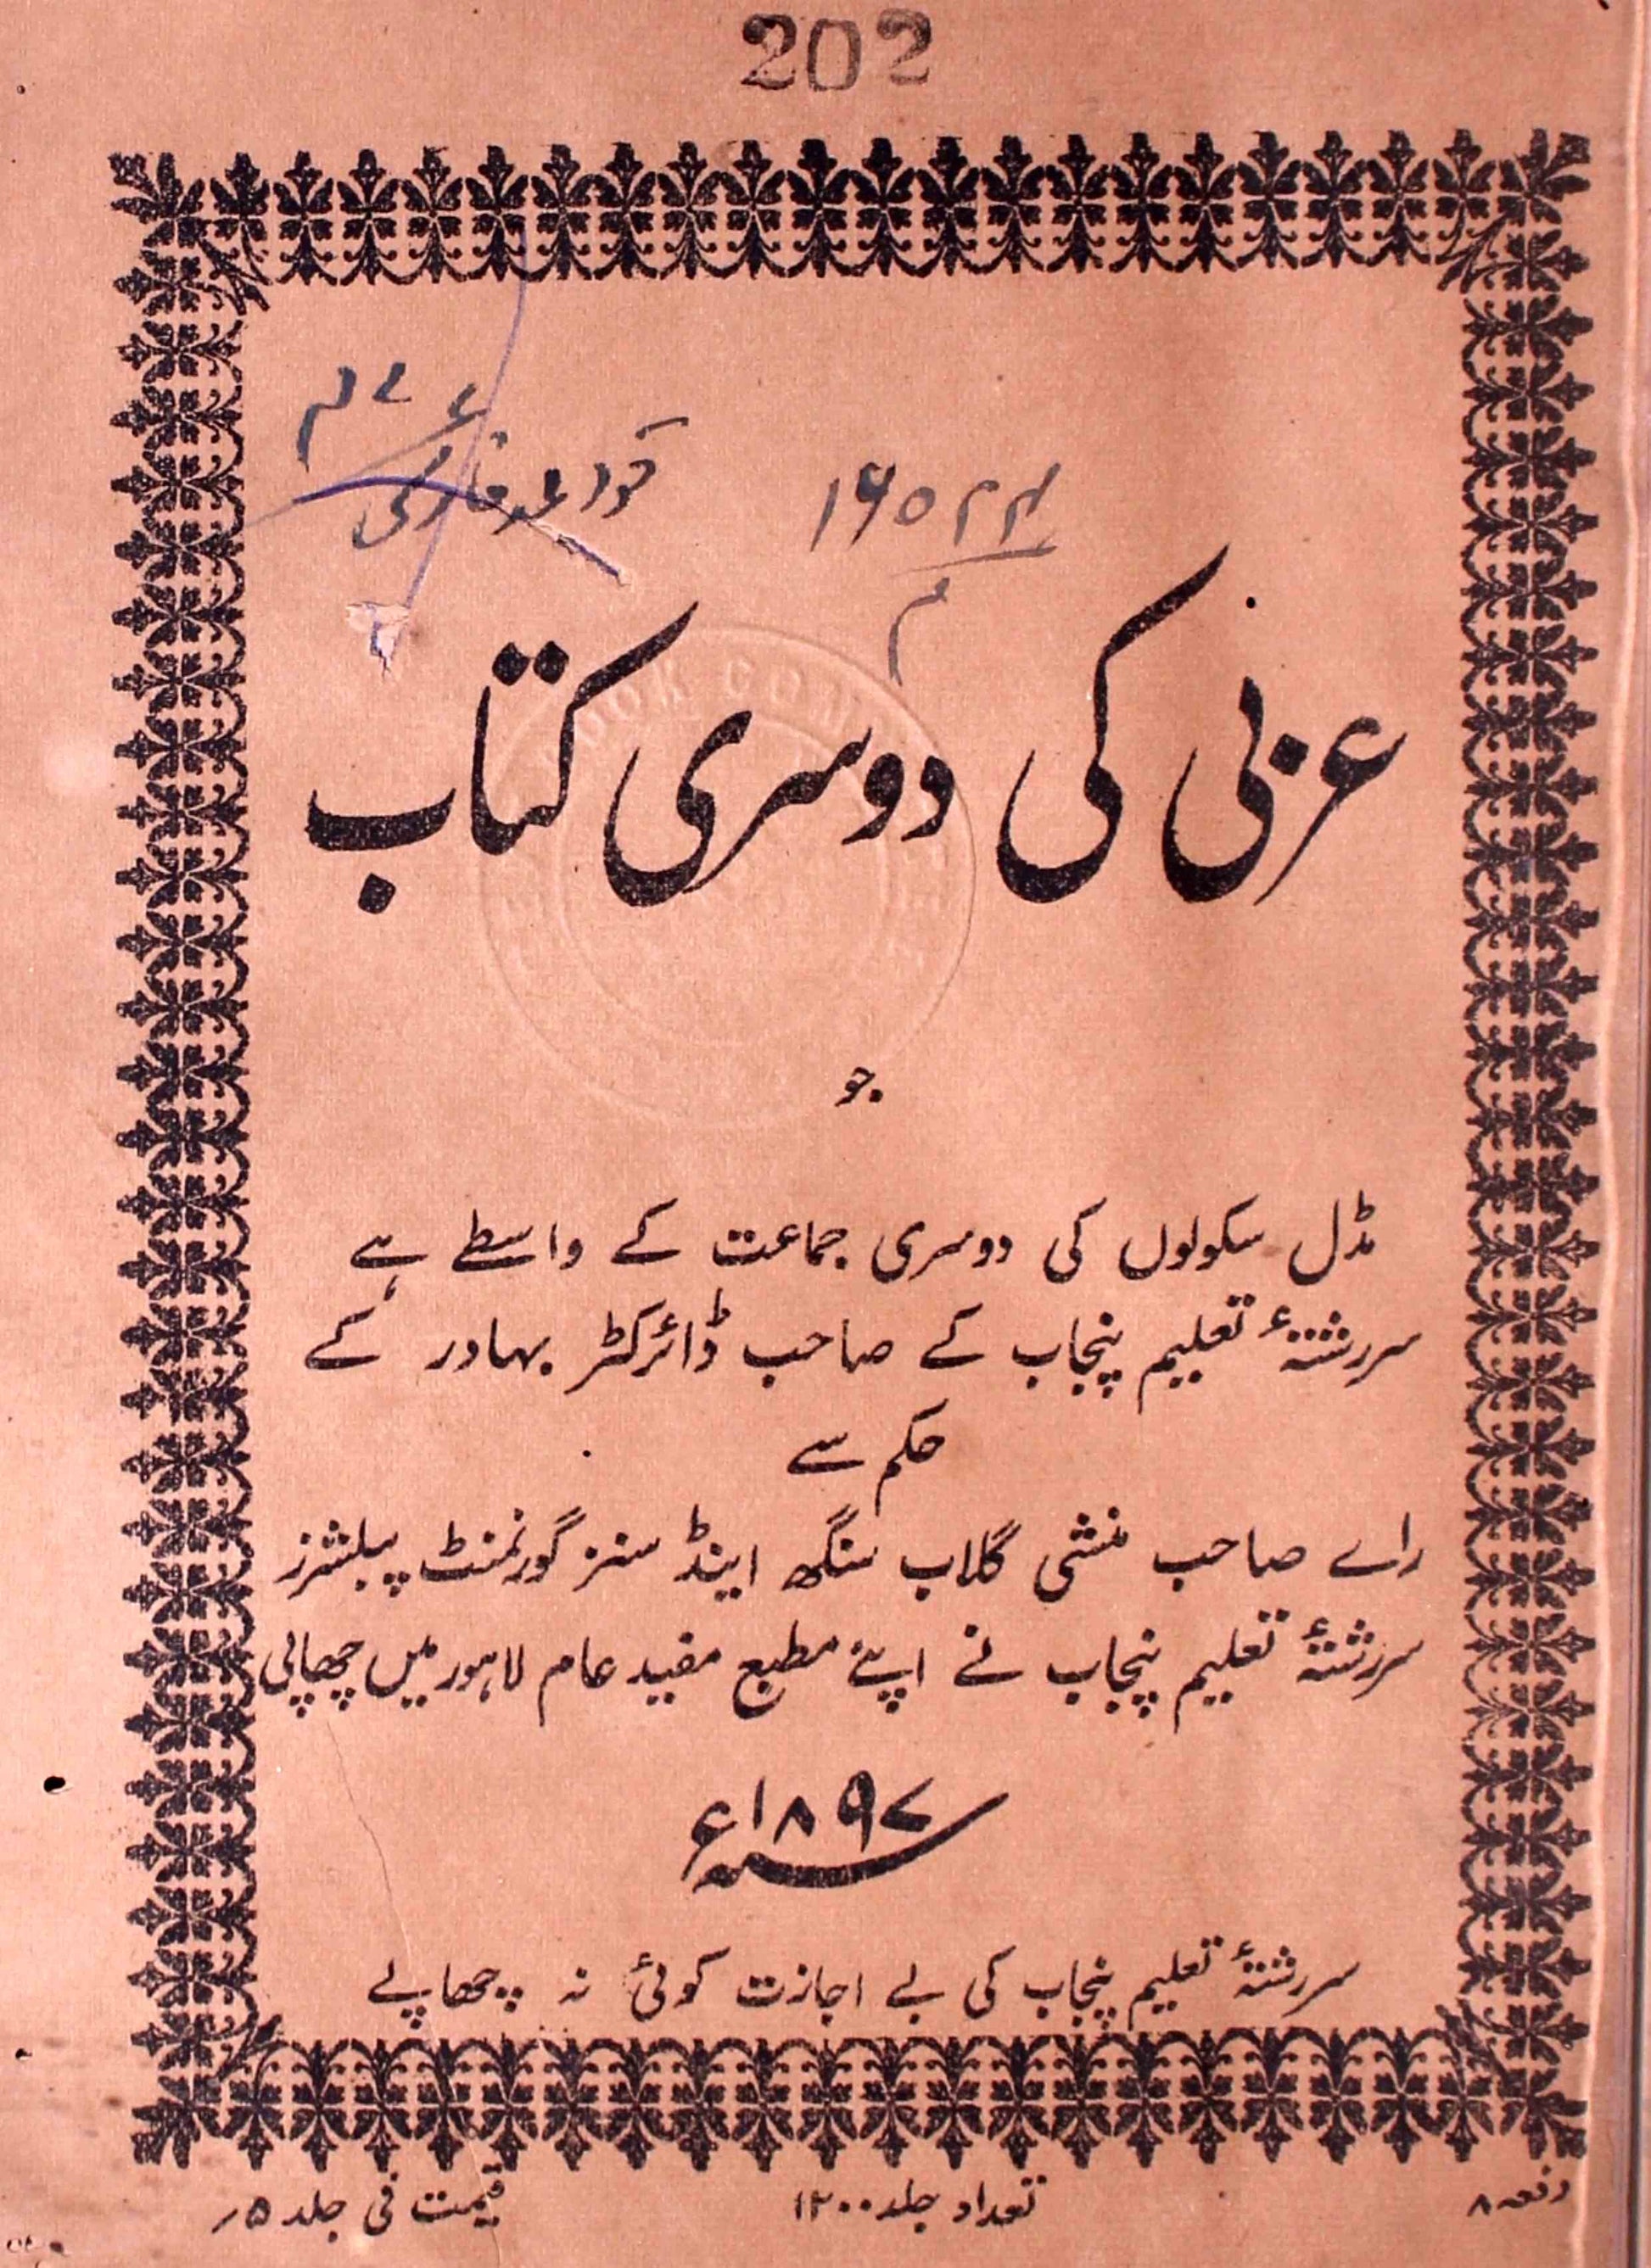 202
۱۶۵۲۲
م
عربی کی دوسری کتاب
BOOK COM
جو
مڈل سکولوں کی دوسری جماعت کے واسطے ہے
سررشتۂ تعلیم پنجاب کے صاحب ڈائرکٹر بہادر کے
حکم سے
راے صاحب منشی گلاب سنگھ اینڈ سنز گورنمنٹ پبلشرز
سررشتۂ تعلیم پنجاب نے اپنے مطبع مفید عام لاہور میں چھاپی
سنہ ۱۸۹۷ء
سررشتۂ تعلیم پنجاب کی بے اجازت کوئی نہ چھاپے
دفعہ ۸
تعداد جلد ۱۲۰۰
قیمت فی جلد ۵؍